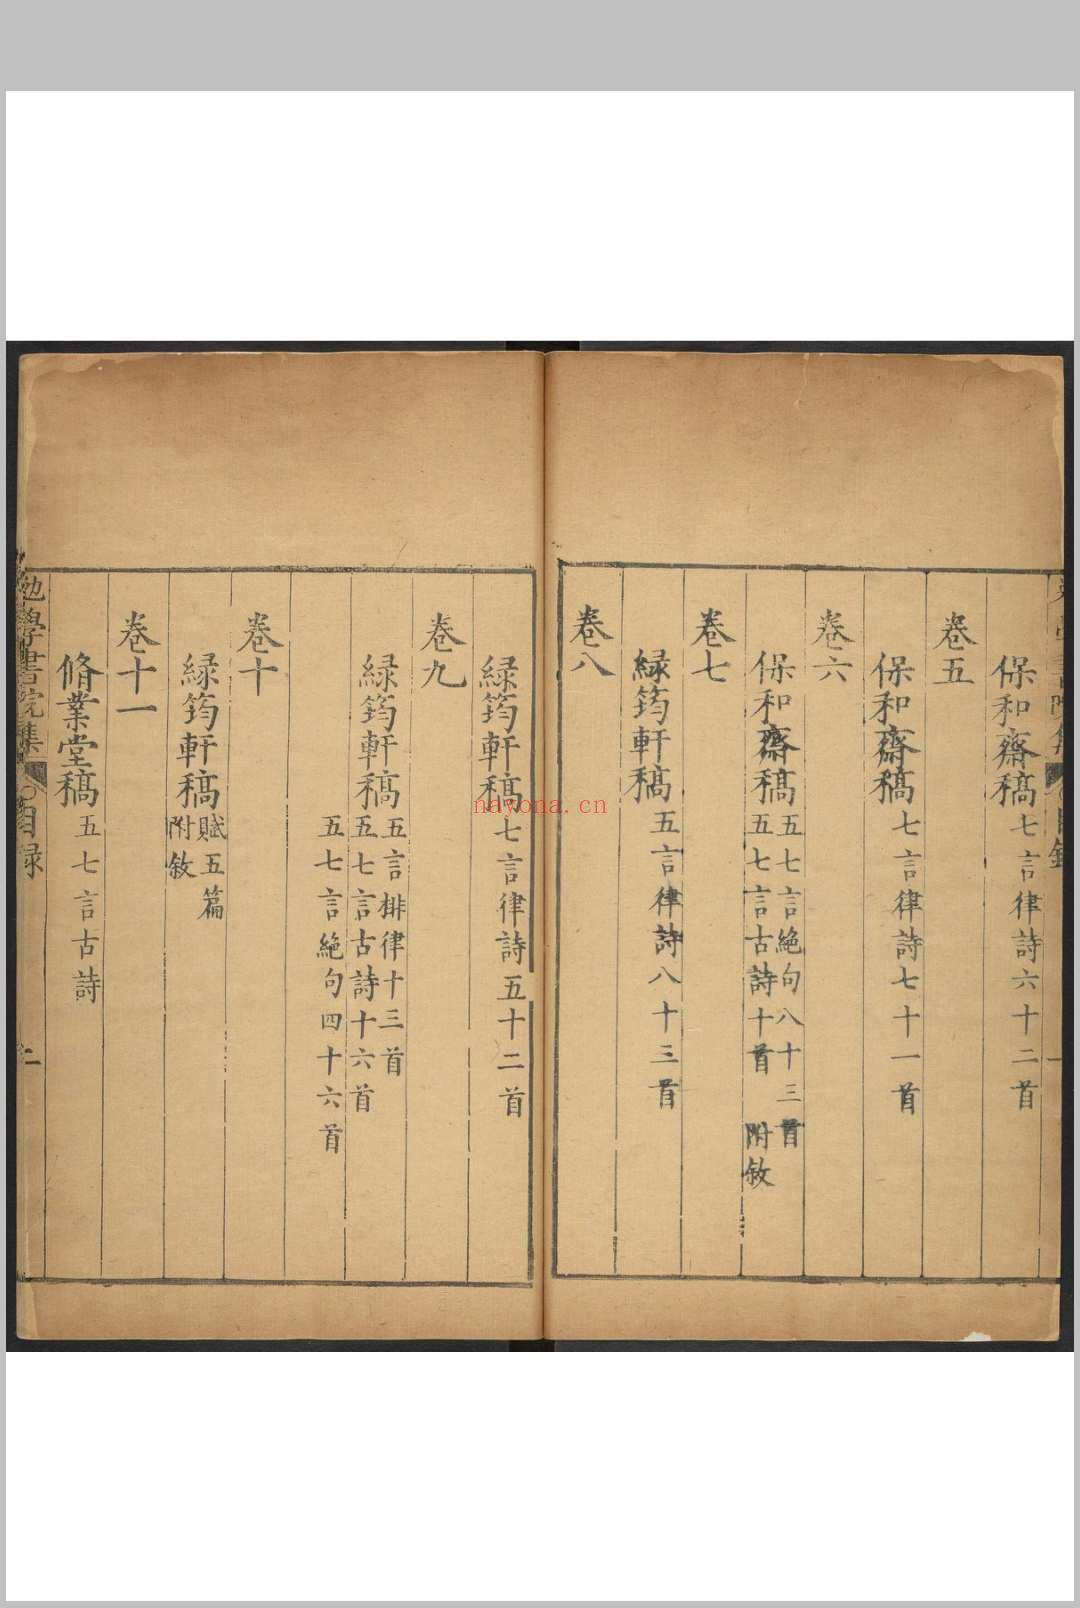 保和齋稿七言律詩六十二首
卷五
保和齋稿七言律詩七十一首
卷六
保和齋稿五七言絶句八十三首
五七言古詩十首 附敘
卷七
緑筠軒稿五言律詩八十三首
卷八
緑筠軒稿七言律詩五十二首
卷九
緑筠軒稿五言排律十三首
五七言古詩十六首
五七言絶句四十六首
卷十
緑筠軒稿賦五篇
附敘
卷十一
脩業堂稿五七言古詩
勉學書院集 目録 二
nayona.cn